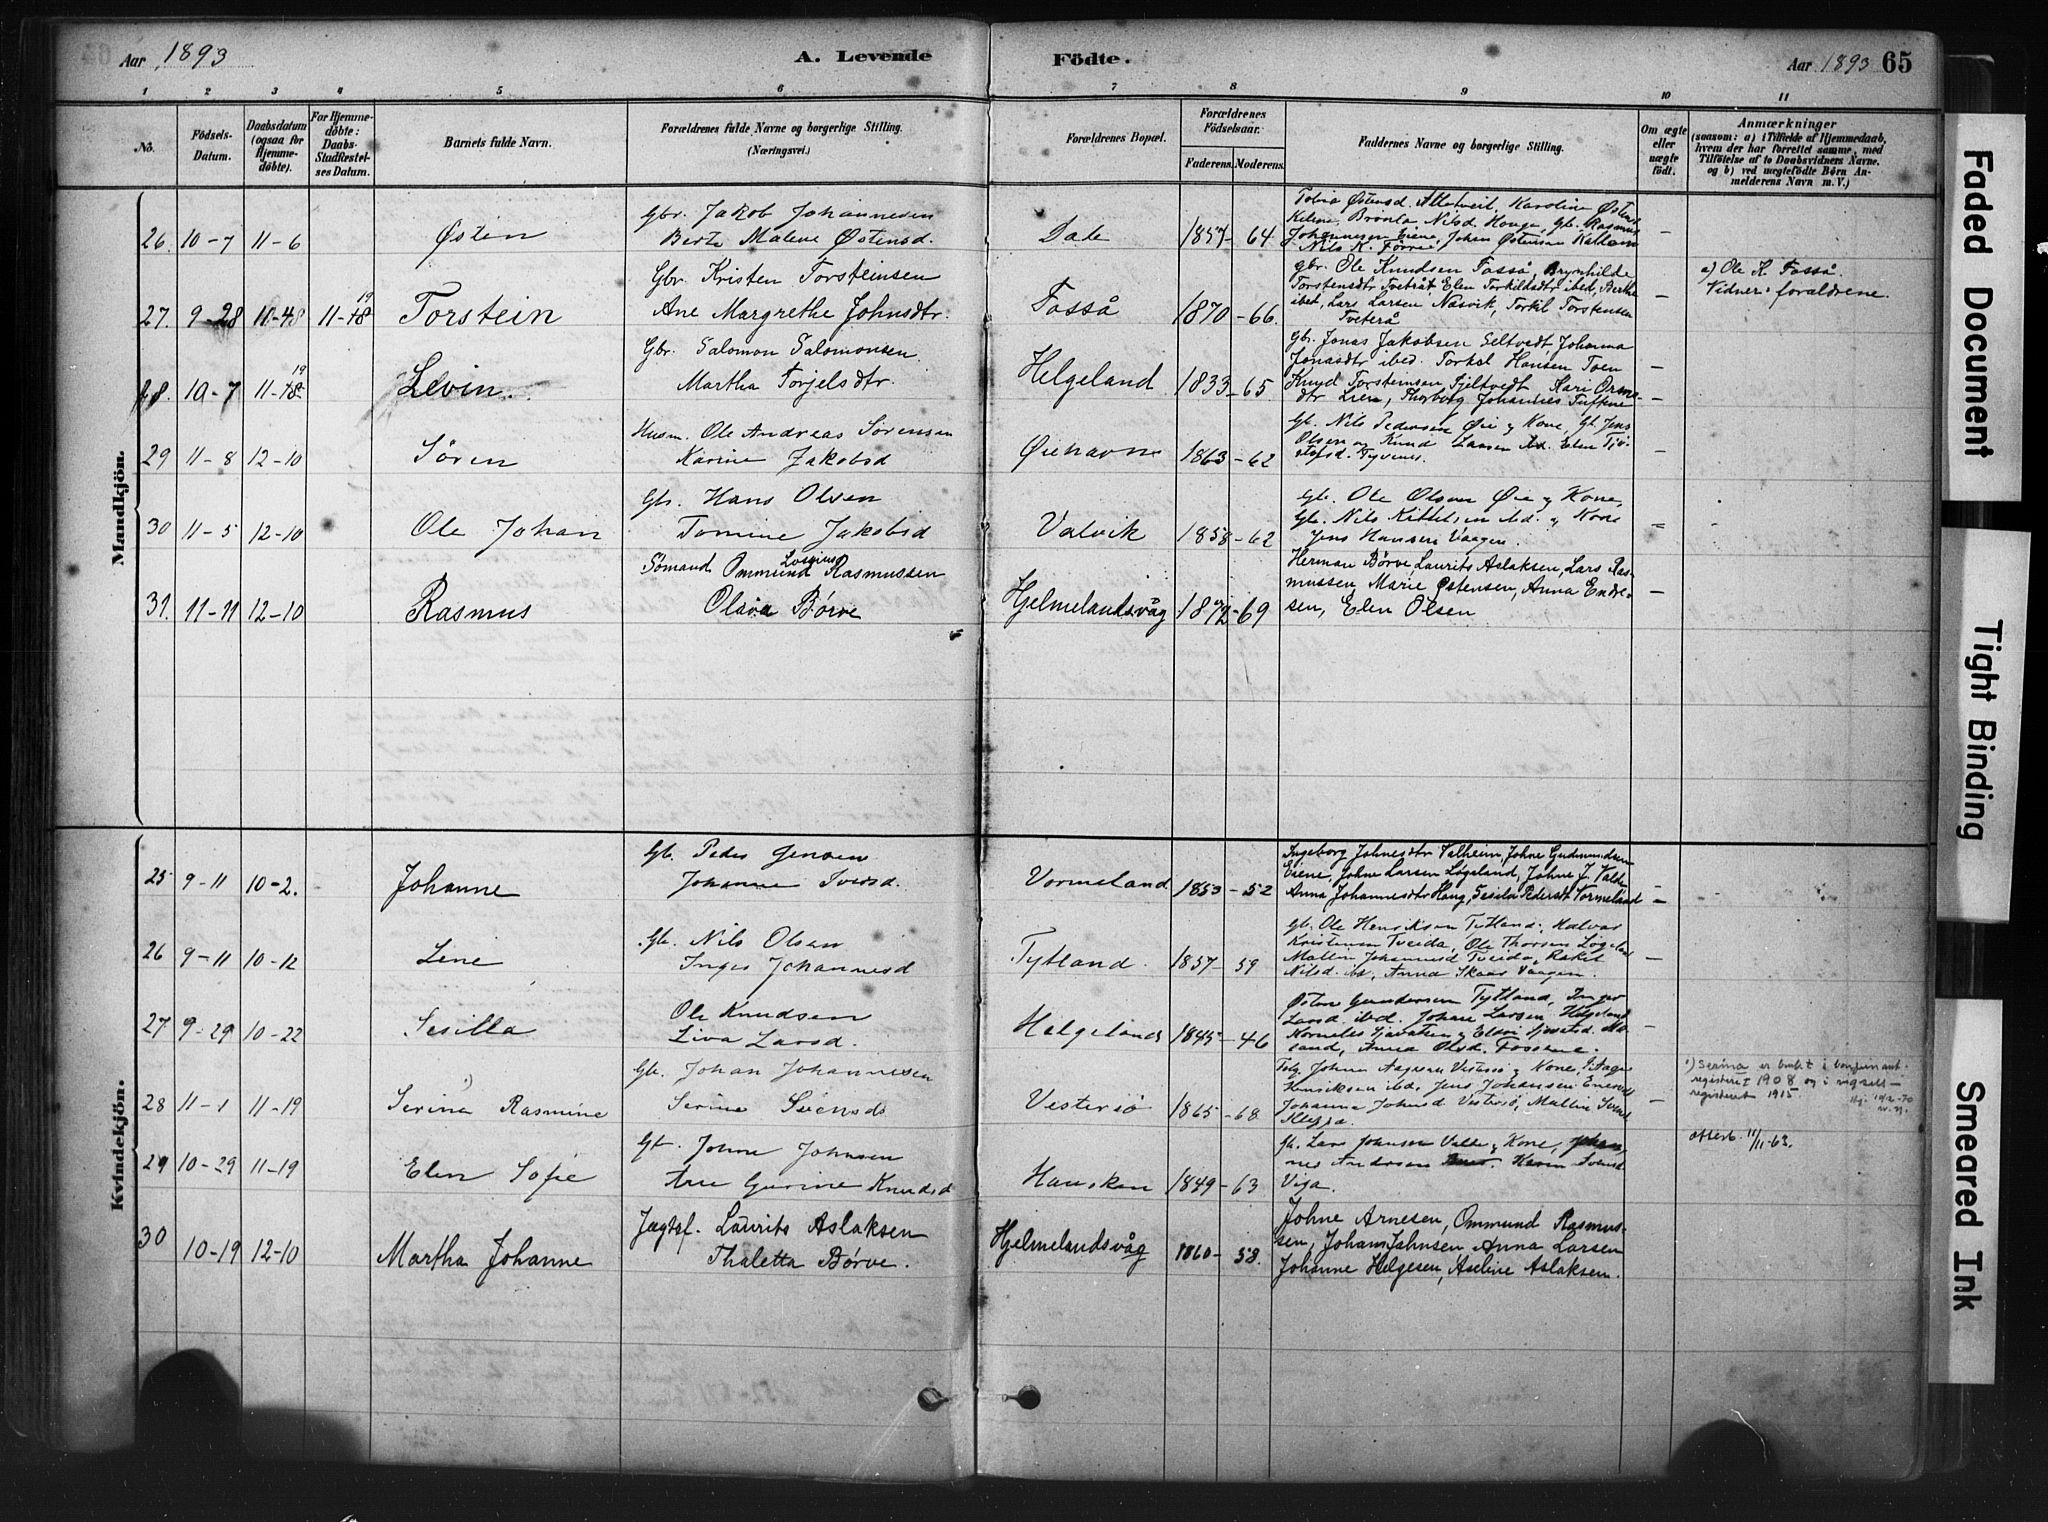 Aar 1893
A. Levende
Födte.
Aar 1893 65
1 2 3 4 5 6 7 8 9 10 11
No.
Födsels-Datum.
Daabsdatum (ogsaa for Hjemme-döbte).
For Hjemme-döbte: Daabs-Stadfæstel-ses Datum.
Barnets fulde Navn.
Forældrenes fulde Navne og borgerlige Stilling. (Næringsvei.)
Forældrenes Bopæl.
Forældrenes Födselsaar.
Faderens. Moderens.
Faddernes Navne og borgerlige Stilling.
Om ægte eller uægte födt.
Anmærkninger
(saasom: a) i Tilfælde af Hjemmedaab, hvem der har forrettet samme, med Tilföielse af to Daabsvidners Navne, og b) ved uægtefödte Börn An-melderens Navn m. V.)
Mandkjön.
26. 10-7 11-6 Østen
Gbr. Jakob Johannesen
Berte Malene Østensd.
Dale 1857-64
Tobia Østensd. Karoline
Nilsd. Hauge Gb. Rasmus
Johannesen Eiene, Johan Østensen
Nils K. Førre
-
27. 9-28 11-18 11-19 Torstein
Gbr Kristen Torsteinsen
Ane Margrethe Johnsdtr.
Fosså 1870-66.
gbr. Ole Knudsen Fosså, Brynhilde
Torstensdtr Tveträ Elen Torkildsdtr ibed, Berthe
ibed, Lars Larsen Näsvik, Torkil Torstensen
Tveterå
-
a) Ole K. Fosså.
Vidner: foraldrene.
28. 10-7 11-19 Levin.
Gbr. Salomon Salomonsen
Martha Torjelsdtr.
Helgeland 1833-65
Gbr. Jonas Jakobsen Johanna
Jonasdtr ibed. Torkel Hansen Toen
Knud Torsteinsen Fjeltvedt Kari Orms-
dtr Lien, Thorborg Johannes
-
29 11-8 12-10 Søren
Husm. Ole Andreas Sørensen
Karine Jakobsd
Øiehavn 1863-62
Gb. Nils Pedersen Øie & Kone, Gb. Jens
Olsen og Knud Larsen Elen
Tyvenes.
-
30 11-5 12-10 Ole Johan
Gbr. Hans Olsen
Tomine Jakobsd
Valvik 1858-62
Gb. Ole Olsen Øie & Kone,
Gb. Nils Kittelsen ibd. & Kone
Jens Hansen Vaagen.
-
31. 11-11 12-10 Rasmus
Sømand Ommund Rasmussen
Olava Børve
Hjelmelandsvåg 1872-69
Herman Børve Laurits Aslaksen, Lars Ras-
mussen, Marie Østensen, Anna Endre-
sen, Elen Olsen
-
Kvindekjön.
25 9-11 10-2. Johanne
Gb. Peder Jensen
Johanne Iversd.
Vormeland 1853-52
Ingeborg Johnesdtr Valheim, Johne Gudmundsen
Eiene, Johne Larsen Løgeland, Johne J. Valde
Anna Johannesdtr Haug, Sesila Pedersdt Vormeland
-
26 9-11 10-12 Line
Gb. Nils Olsen
Inger Johannesd
Tytland. 1857-59
Gb. Ole Henriksen Tytland. Halvar
Kristensen Tveida, Ole Thorsen Løgeland
Mallin Johannesd Tveida, Rakel
Nilsd. ib., Anna Skaar Vaagen.
-
27 9-29 10-22 Sesilla
Ole Knudsen
Liva Larsd.
Helgeland 1845-46
Østen Gundersen Tytland, Inger
Larsd ibd. Johan Larsen Helgeland
Kornelius
Anna Olsd. Fossene.
-
28 11-1 11-19 Serina Rasmine
Gb. Johan Johannesen
Serine Svensd
Vestersø 1865-68
Johan Aagesen Vestersø & Kone, Aage
Henriksen ibd., Jens Johansen
Johanna Johnsd Vestersø, Mallin
-
1) Serina er brukt i konfirmant-
registeret 1908 og i
registeret 1915.
29 10-29 11-19 Elen Sofie
Gb. Johne Johnsen
Ane Gurine Knudsd
Hausken 1849-63
Gb. Lars Johnsen Valde & Kone,
Andersen Karen
Viga.
atterb. 11/11-63.
30 10-19 12-10 Martha Johanne
Jægtsf. Laurits Aslaksen
Thaletta Børve.
Hjelmelandsvåg 1860-58.
Johne Arnesen, Ommund Rasmus-
sen, Johan Johnsen Anna Larsen
Johanne Helgesen, Aseline Aslaksen.
Faded Document
Tight Binding
Smeared Ink